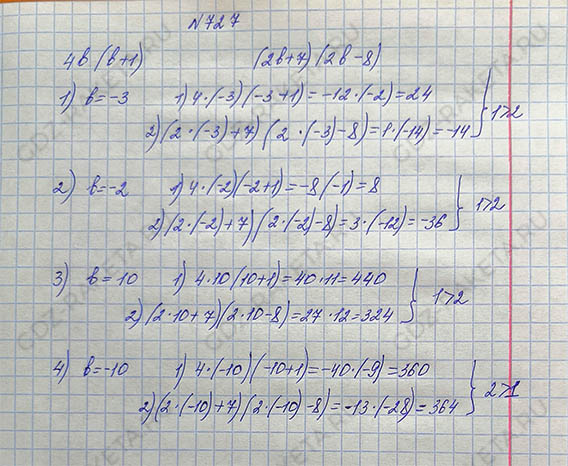 №727
4в(в+1) (2в+7)(2в-8)
1) в=-3 1) 4·(-3)(-3+1)=-12·(-2)=24
2)(2·(-3)+7)(2·(-3)-8)=1·(-14)=-14 } 1>2
2) в=-2 1) 4·(-2)(-2+1)=-8(-1)=8
2)(2·(-2)+7)(2·(-2)-8)=3·(-12)=-36 } 1>2
3) в=10 1) 4·10(10+1)=40·11=440
2)(2·10+7)(2·10-8)=27·12=324 } 1>2
4) в=-10 1) 4·(-10)(-10+1)=-40·(-9)=360
2)(2·(-10)+7)(2·(-10)-8)=-13·(-28)=364 } 2>1
GDZ-RAKETA.RU